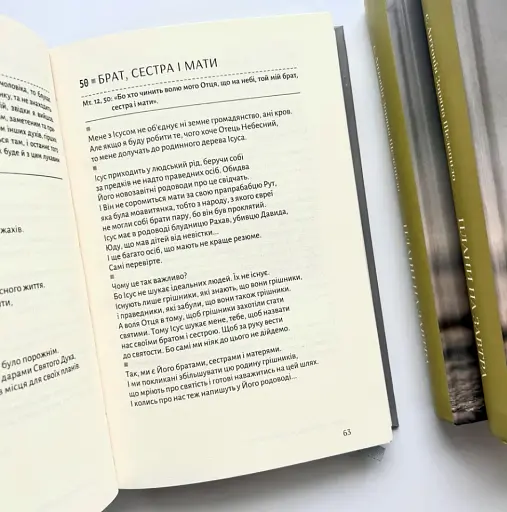 чоловіка, то блукає
нку, та не знаходить
ій, звідки я вийшов
, заметеним та при
м інших духів, гірших
ться там, і останнє того
к буде й з цим лукавим
жахів.
сного життя.
ити,
було порожнім.
дарами Святого Духа.
в місця для своїх планів.
50 БРАТ, СЕСТРА І МАТИ
Мт. 12, 50: «Бо хто чинить волю мого Отця, що на небі, той мій брат,
сестра і мати».
Мене з Ісусом не об'єднує ні земне громадянство, ані кров.
Але якщо я буду робити те, чого хоче Отець Небесний,
то мене долучать до родинного дерева Ісуса.
Ісус приходить у людський рід, беручи собі
за предків не надто праведних осіб. Обидва
Його новозавітні родоводи про це свідчать.
І Він не соромиться мати за свою прапрабабцю Рут,
яка була моавитянка, тобто з народу, з якого євреї
не могли собі брати пару, бо він був проклятий.
Ісус має в родоводі блудницю Рахав, убивцю Давида,
Юду, що мав дітей від невістки...
І ще багато осіб, що мають не краще резюме.
Самі перевірте.
Чому це так важливо?
Бо Ісус не шукає ідеальних людей. Їх не існує.
Існують лише грішники, які знають, що вони грішники,
і праведники, які забули, що вони також грішники.
А воля Отця в тому, щоб грішники захотіли стати
святими. Тому Ісус шукає мене, тебе, щоб назвати
нас своїми братом і сестрою. Щоб за руку вести
до святости. Бо самі ми ніяк до цього не дійдемо.
Так, ми є Його братами, сестрами і матерями.
І ми покликані збільшувати цю родину грішників,
що мріють про святість і готові наважитись на цей шлях.
І колись про нас теж напишуть у Його родоводі...
63